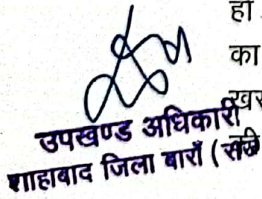 हो
का
खस
उपखण्ड अधिकारी
शाहाबाद जिला बाराँ (